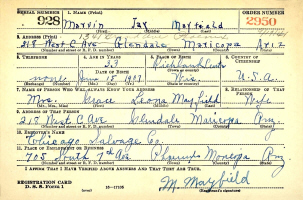 SERIAL NUMBER 1. NAME (Print) ORDER NUMBER
928 Marvin Jay Mayfield 2950
2. ADDRESS (Print)
218 West C Ave Glendale Maricopa Ariz
3. TELEPHONE 4. AGE IN YEARS 5. PLACE OF BIRTH 6. COUNTRY OF CITIZENSHIP
33 Richland Center
DATE OF BIRTH
none June 18 1907 Wis. U.S.A.
7. NAME OF PERSON WHO WILL ALWAYS KNOW YOUR ADDRESS 8. RELATIONSHIP OF THAT PERSON
Mrs. Grace Leona Mayfield Wife
9. ADDRESS OF THAT PERSON
218 West C Ave Glendale Maricopa Ariz
10. EMPLOYER'S NAME
Chicago Salvage Co.
11. PLACE OF EMPLOYMENT OR BUSINESS
705 South 7th Ave Phoenix Maricopa Ariz
I AFFIRM THAT I HAVE VERIFIED ABOVE ANSWERS AND THAT THEY ARE TRUE.
REGISTRATION CARD
D. S. S. FORM 1 16-17105 M. Mayfield
(Registrant's signature)